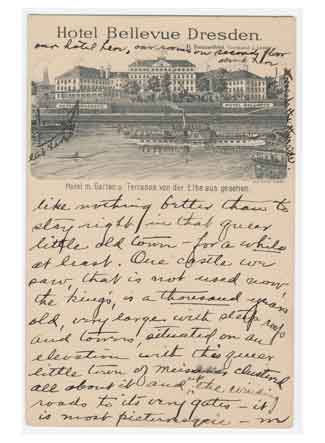 Hotel Bellevue Dresden.
our hotel here, our rooms on second floor
HOTEL BELLEVUE
Hotel m. Garten u. Terrasse von der Elbe aus gesehen.
like nothing better than to
stay right in that queer
little old town - for a while
at least. One castle we
saw, that is not used now
the kings, is a thousand years
old, very large with steep roofs
and towers, situated on an
elevation with this queer
little town of Meissen clustered
all about it and "the windi
roads to its very gates - it
is most picturesque - in